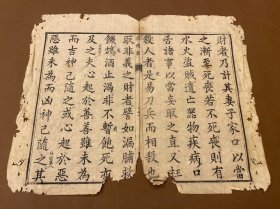 財者乃計其妻子家口以當
之漸至死喪若不死喪則有
水火盜賊遺亡器物疾病口
舌諸事以當妄取之直又枉
殺人者是易刀兵而相殺也
取非義之財者譬如漏脯救
饑鴆酒止渴非不暫飽死亦
及之夫心起於善善雖未為
而吉神已隨之或心起於惡
惡雖未為而凶神已隨之其